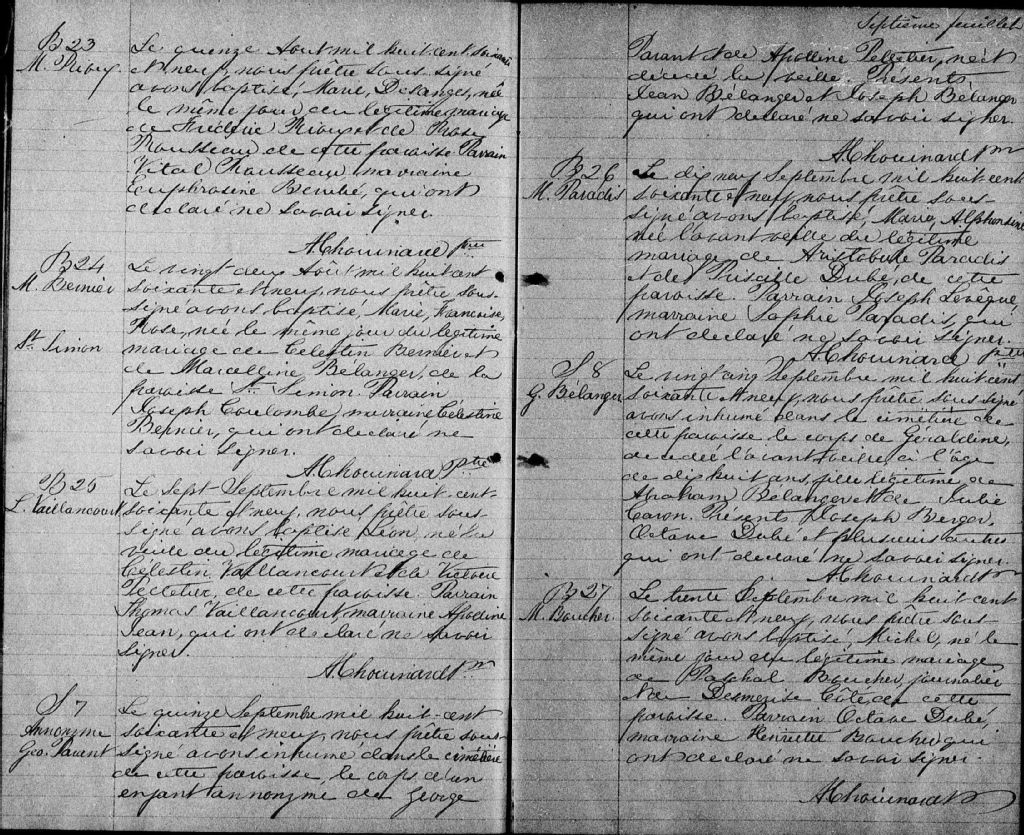 B 23
M. Rioux
Le quinze Aout mil huit cent soixante
et neuf, nous prêtre sous-signé
avons baptisé, Marie, Desanges, née
le même jour du légitime mariage
de Frédéric Rioux et de Rose
Rousseau de cette paroisse Parrain
Vital Rousseau, marraine
Euphrosine Bérubé, qui ont
déclaré ne savoir signer.
A Chouinard Ptre
B 24
M. Bernier
St. Simon
Le vingt deux Août mil huit cent
soixante et neuf, nous prêtre sous-
signé avons baptisé, Marie, Françoise,
Rose, née le même jour du légitime
mariage de Célestin Bernier et
de Marcelline Bélanger, de la
paroisse St. Simon Parrain
Joseph Coulombe, marraine Célestine
Bernier, qui ont declaré ne
savoir signer.
A Chouinard Ptre
B 25
L. Vaillancourt
Le Sept Septembre mil huit-cent-
soixante et neuf, nous prêtre sous-
signé avons baptisé Léon, né la
veille du légitime mariage de
Célestin Vaillancourt et de Victoire
Pelletier, de cette paroisse. Parrain
Thomas Vaillancourt, marraine Apolline
Jean, qui ont declaré ne savoir
signer.
A Chouinard Ptre
S 7
Annonyme
Geo. Parent
Le quinze Septembre mil huit-cent
soixante et neuf, nous prêtre sous-
signé avons inhumé dans le cimétière
de cette paroisse, le corps d'un
enfant annonyme de George
Septième feuillet
Parant et de Apolline Pelletier, né et
décédé la veille. Présents,
Jean Bélanger et Joseph Bélanger
qui ont déclaré ne savoir signer.
A Chouinard Ptre
B 26
M. Paradis
Le dix neuf Septembre mil huit cent
soixante et neuf, nous prêtre sous-
signé avons baptisé, Marie, Alphonsine
née l'avant veille du légitime
mariage de Aristobule Paradis
et de Priscille Dubé, de cette
paroisse. Parrain Joseph Levêque,
marraine Sophie Paradis, qui
ont declaré ne savoir signer.
A Chouinard Ptre
S 8
G. Bélanger
Le vingt cinq Septembre mil huit cent
soixante et neuf, nous prêtre sous-signé
avons inhumé dans le cimétière de
cette paroisse le corps de Géraldine,
décédée l'avant veille à l'âge
de dix huit ans, fille légitime de
Abraham Bélanger et de Julie
Caron. Présents Joseph Berger,
Octave Dubé et plusieurs autres
qui ont déclaré ne savoir signer.
A Chouinard Ptre
B 27
M. Boucher
Le trente Septembre mil huit cent
soixante et neuf, nous prêtre sous-
signé avons baptisé, Michel, né le
même jour du légitime mariage
de Paschal Boucher, journalier
et de Demerise Côté de cette
paroisse. Parrain Octave Dubé,
marraine Henriette Boucher qui
ont declaré ne savoir signer.
A Chouinard Ptre